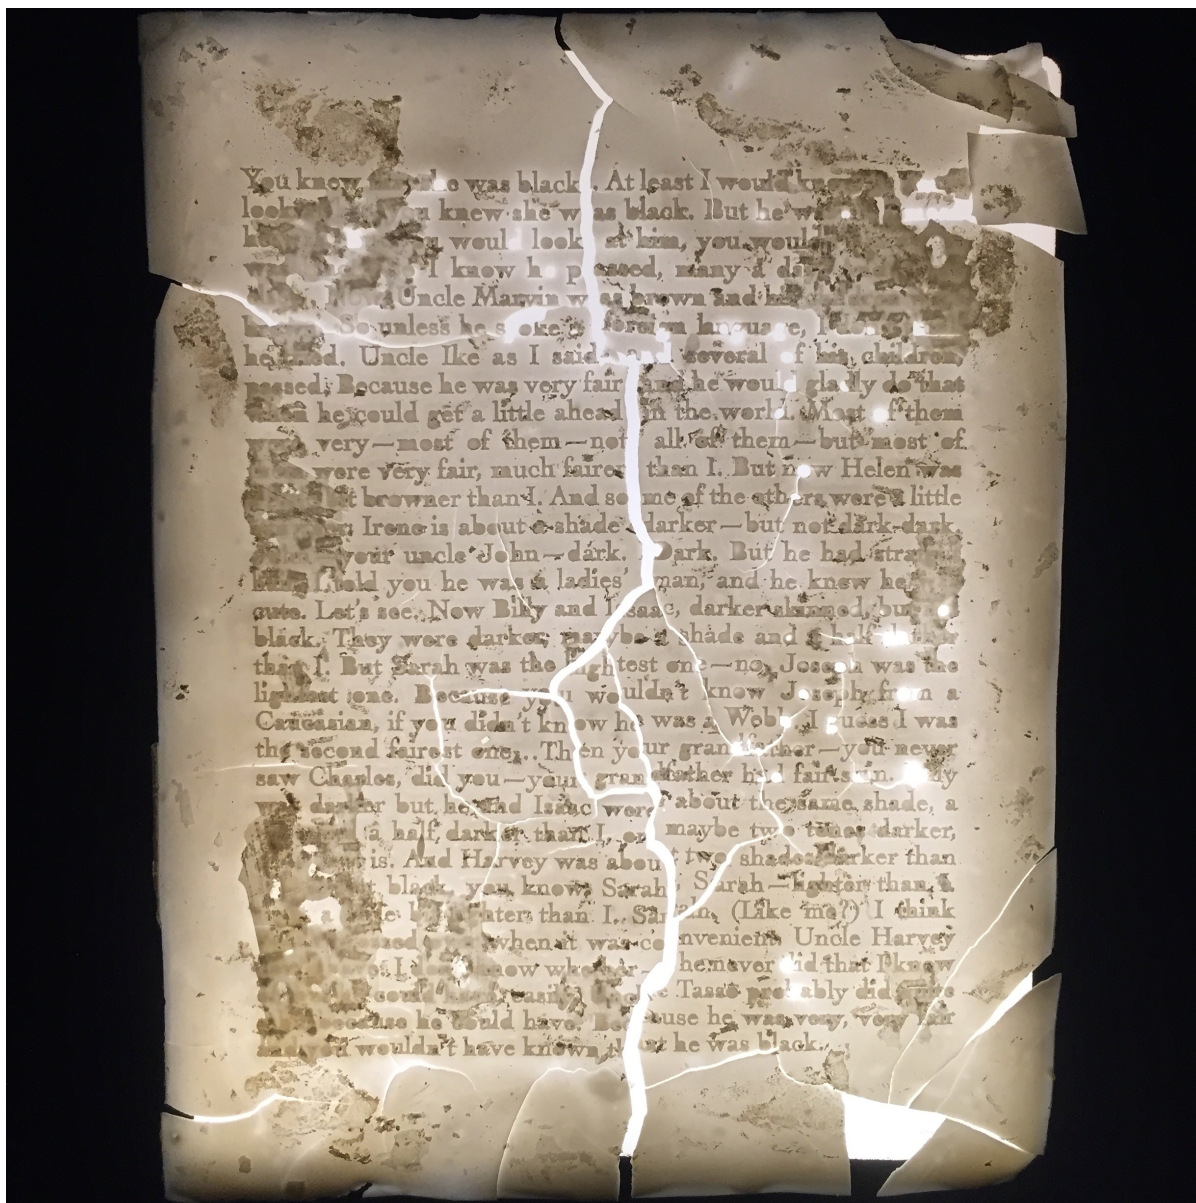 You knew she was black. At least I would
you knew she was black. But he
you would look at him, you would
I know he passed, many a
Now, Uncle Marvin was brown and
So unless he spoke a foreign language, I
he Uncle Ike as I said and several of his children,
passed. Because he was very fair and he would gladly do that
he could get a little ahead in the world. Most of them
were very—most of them—not all of them—but most of
were very fair, much fairer than I. But now Helen was
browner than I. And some of the others were a little
Irene is about a shade darker—but not dark-dark.
your uncle John—dark. Dark. But he had
I told you he was a ladies' man, and he knew he
cute. Let's see. Now Billy and Isaac, darker skinned, but
black. They were darker, maybe a shade and a half darker
than I. But Sarah was the lightest one—no, Joseph was the
lightest one. Because you wouldn't know Joseph from a
Caucasian, if you didn't know he was a Webb. I guess I was
the second fairest one. Then your grandfather—you never
saw Charles, did you—your grandfather had fair skin.
was darker but he and Isaac were about the same shade, a
a half, darker than I, or maybe two tones darker,
is. And Harvey was about two shades darker than
black, you know. Sarah, Sarah—lighter than I.
a lighter than I. Sarah. (Like me?) I think
when it was convenient. Uncle Harvey
I don't know whether—he never did that I know
could have, easily. Uncle Tasso probably did
because he could have. Because he was very, very fair
and you wouldn't have known that he was black.